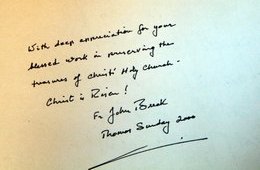 With deep appreciation for your
blessed work in preserving the
treasures of Christ's Holy Church -
Christ is Risen!
Fr John
Thomas Sunday 2000